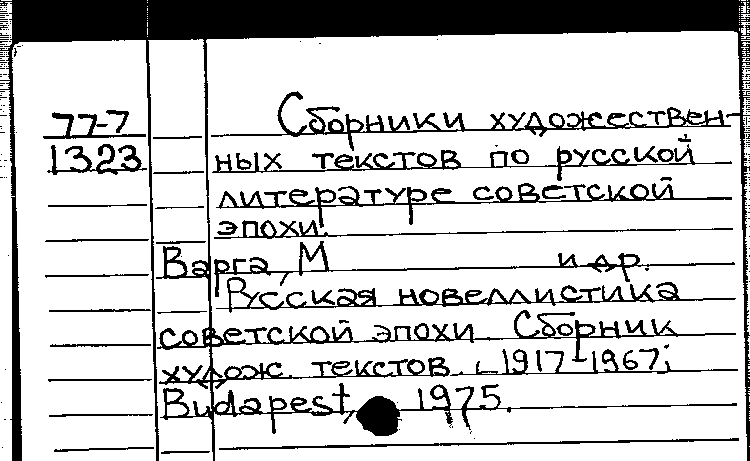 77-7
1323
Сборники художествен-
ных текстов по русской
литературе советской
эпохи.
Варга, М и др.
Русская новеллистика
советской эпохи. Сборник
худож. текстов. 1917-1967;
Budapest, 1975.